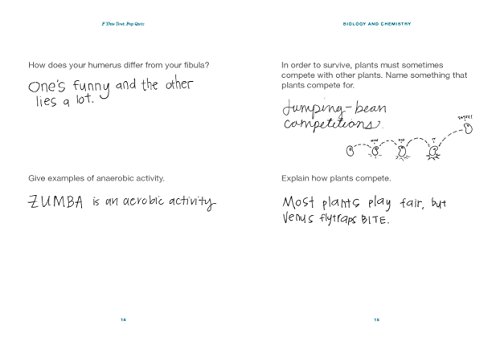 F This Test: Pop Quiz
How does your humerus differ from your fibula?
One's funny and the other
lies a lot.
Give examples of anaerobic activity.
ZUMBA is an aerobic activity
14
BIOLOGY AND CHEMISTRY
In order to survive, plants must sometimes
compete with other plants. Name something that
plants compete for.
Jumping-bean
competitions.
Explain how plants compete.
Most plants play fair, but
Venus flytraps BITE.
15